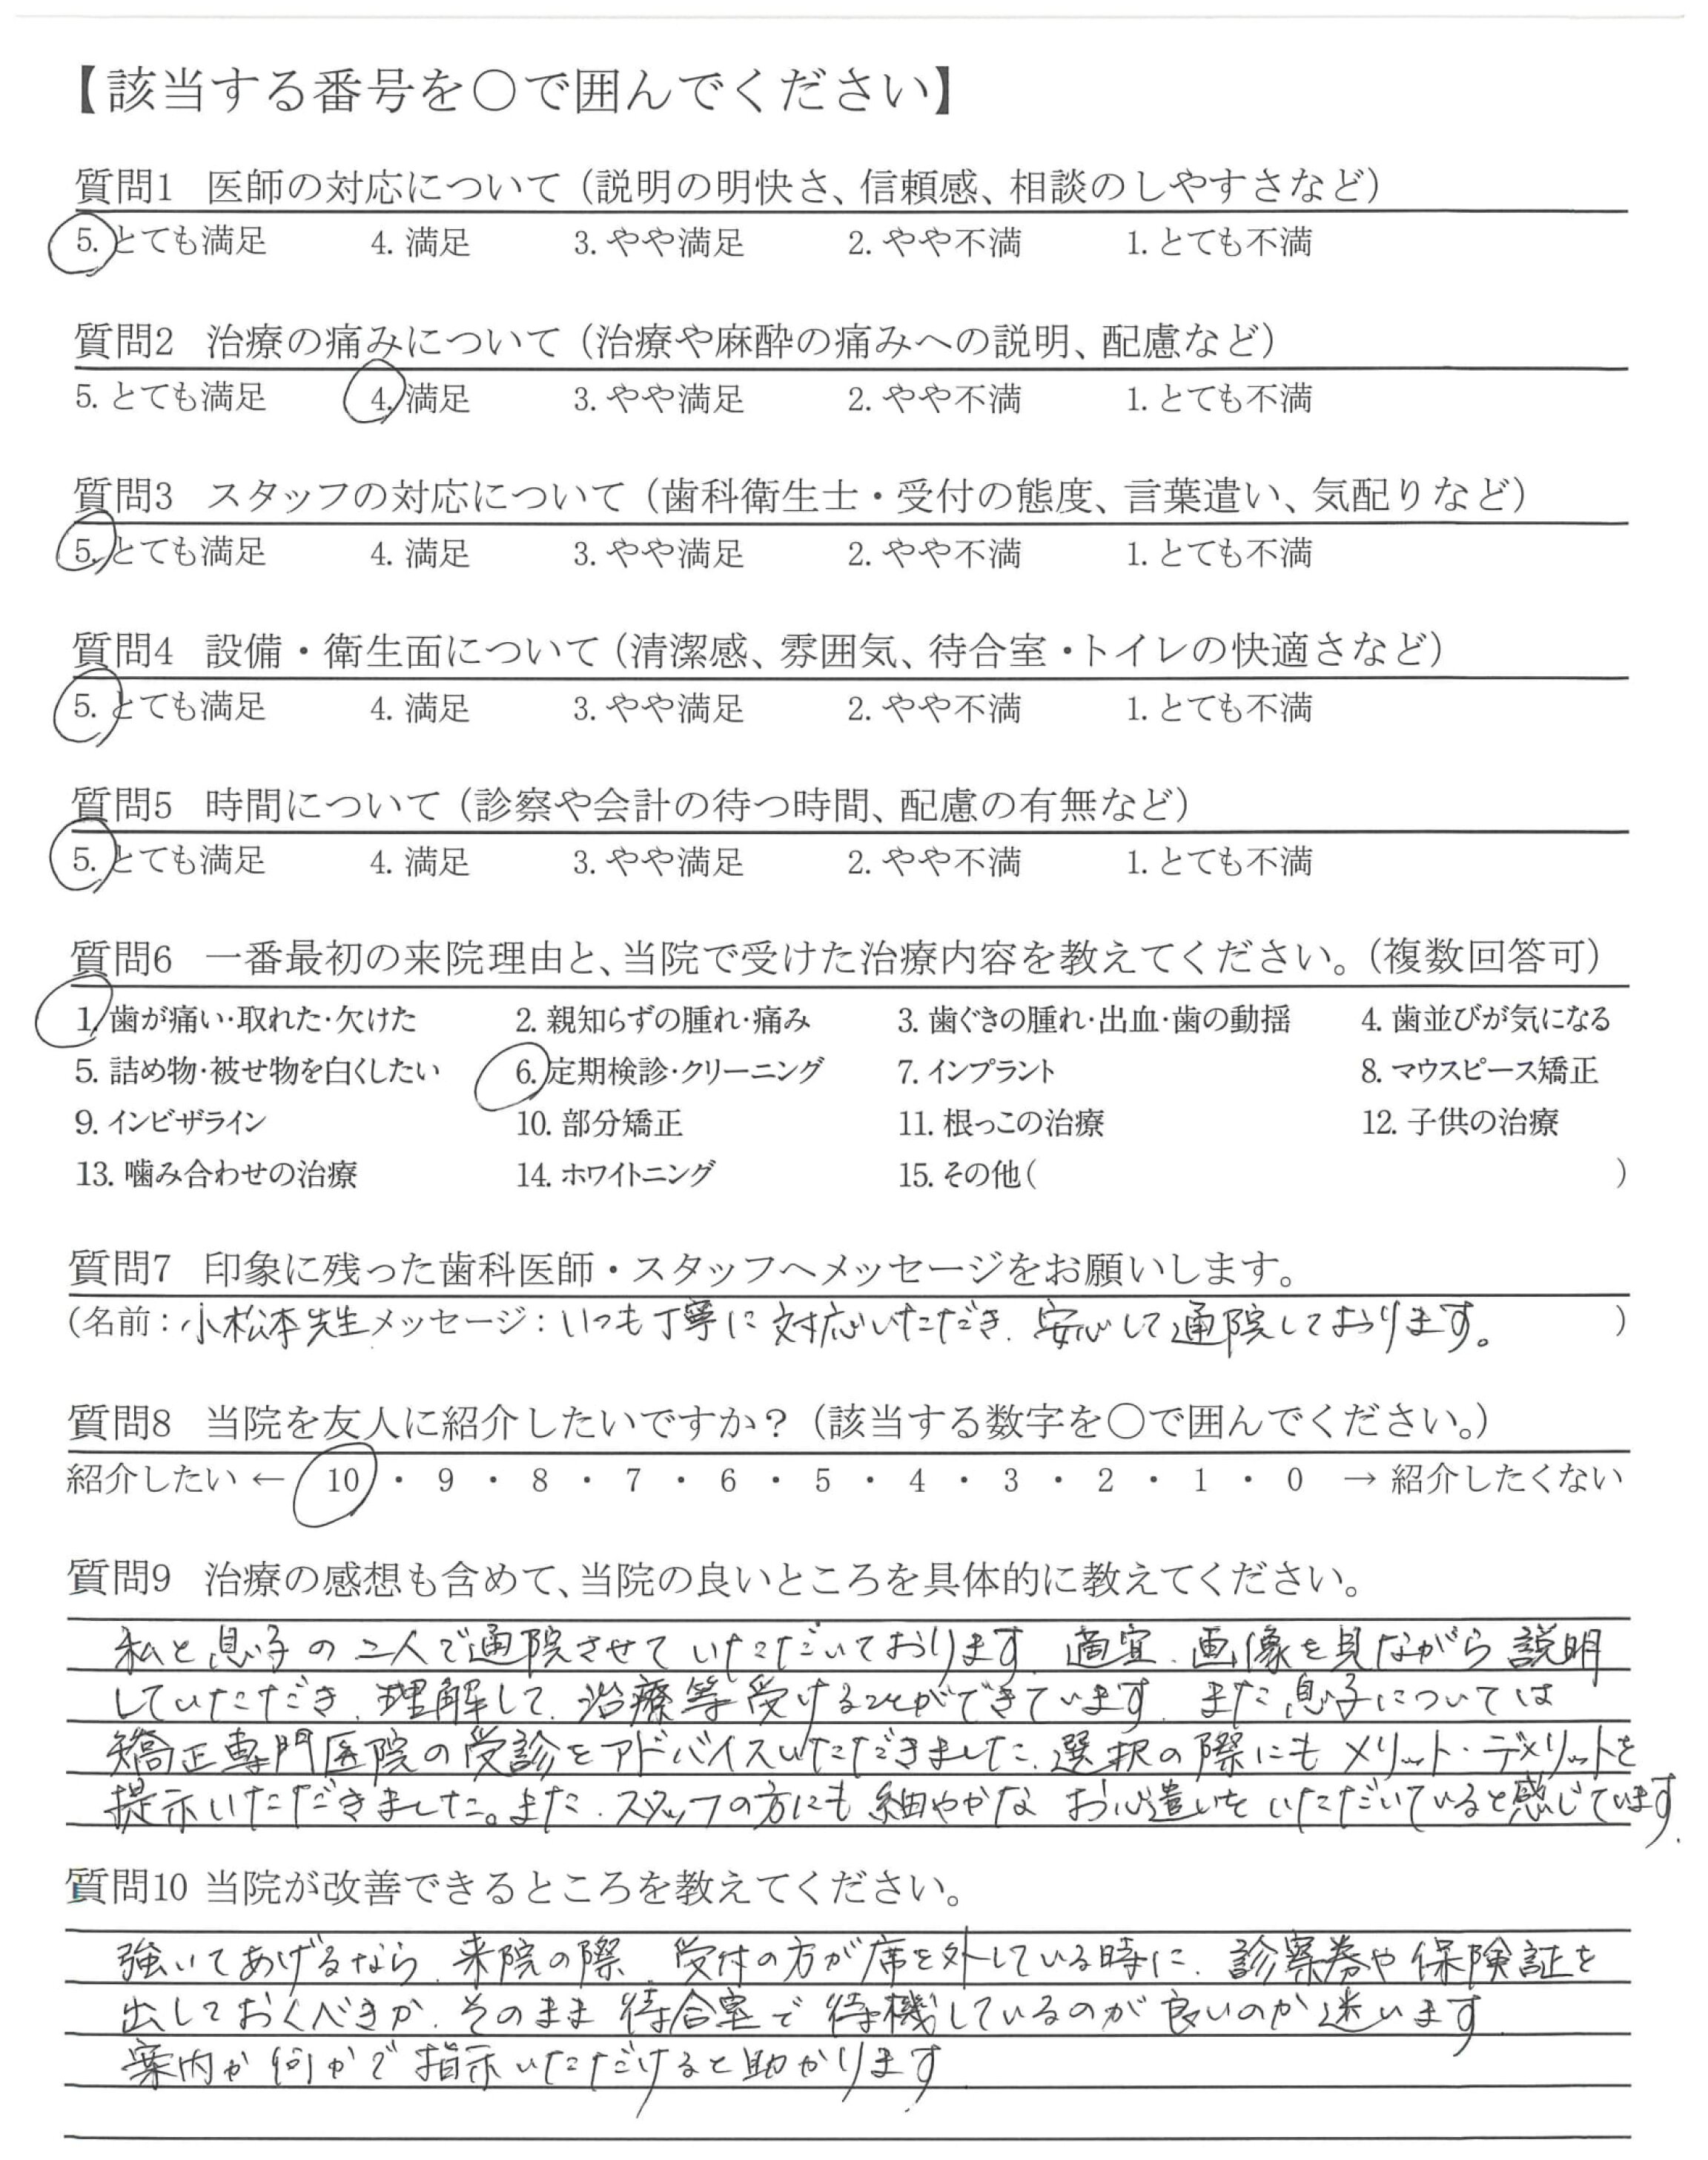 【該当する番号を〇で囲んでください】
質問1 医師の対応について（説明の明快さ、信頼感、相談のしやすさなど）
5. とても満足 4. 満足 3. やや満足 2. やや不満 1. とても不満
質問2 治療の痛みについて（治療や麻酔の痛みへの説明、配慮など）
5. とても満足 4. 満足 3. やや満足 2. やや不満 1. とても不満
質問3 スタッフの対応について（歯科衛生士・受付の態度、言葉遣い、気配りなど）
5. とても満足 4. 満足 3. やや満足 2. やや不満 1. とても不満
質問4 設備・衛生面について（清潔感、雰囲気、待合室・トイレの快適さなど）
5. とても満足 4. 満足 3. やや満足 2. やや不満 1. とても不満
質問5 時間について（診察や会計の待つ時間、配慮の有無など）
5. とても満足 4. 満足 3. やや満足 2. やや不満 1. とても不満
質問6 一番最初の来院理由と、当院で受けた治療内容を教えてください。（複数回答可）
1. 歯が痛い・取れた・欠けた 2. 親知らずの腫れ・痛み 3. 歯ぐきの腫れ・出血・歯の動揺 4. 歯並びが気になる
5. 詰め物・被せ物を白くしたい 6. 定期検診・クリーニング 7. インプラント 8. マウスピース矯正
9. インビザライン 10. 部分矯正 11. 根っこの治療 12. 子供の治療
13. 噛み合わせの治療 14. ホワイトニング 15. その他（ ）
質問7 印象に残った歯科医師・スタッフへメッセージをお願いします。
（名前：小松本先生 メッセージ：いつも丁寧に対応いただき、安心して通院しております。 ）
質問8 当院を友人に紹介したいですか？（該当する数字を〇で囲んでください。）
紹介したい ← 10 ・ 9 ・ 8 ・ 7 ・ 6 ・ 5 ・ 4 ・ 3 ・ 2 ・ 1 ・ 0 → 紹介したくない
質問9 治療の感想も含めて、当院の良いところを具体的に教えてください。
私と息子の二人で通院させていただいております。適宜、画像を見ながら説明
していただき、理解して、治療等受けることができています。また息子については
矯正専門医院の受診をアドバイスいただきました。選択の際にもメリット・デメリットを
提示いただきました。また、スタッフの方にも細やかなお心遣いをいただいていると感じています。
質問10 当院が改善できるところを教えてください。
強いてあげるなら、来院の際、受付の方が席を外している時に、診察券や保険証を
出しておくべきか、そのまま待合室で待機しているのが良いのか迷います。
案内か何かで指示いただけると助かります。